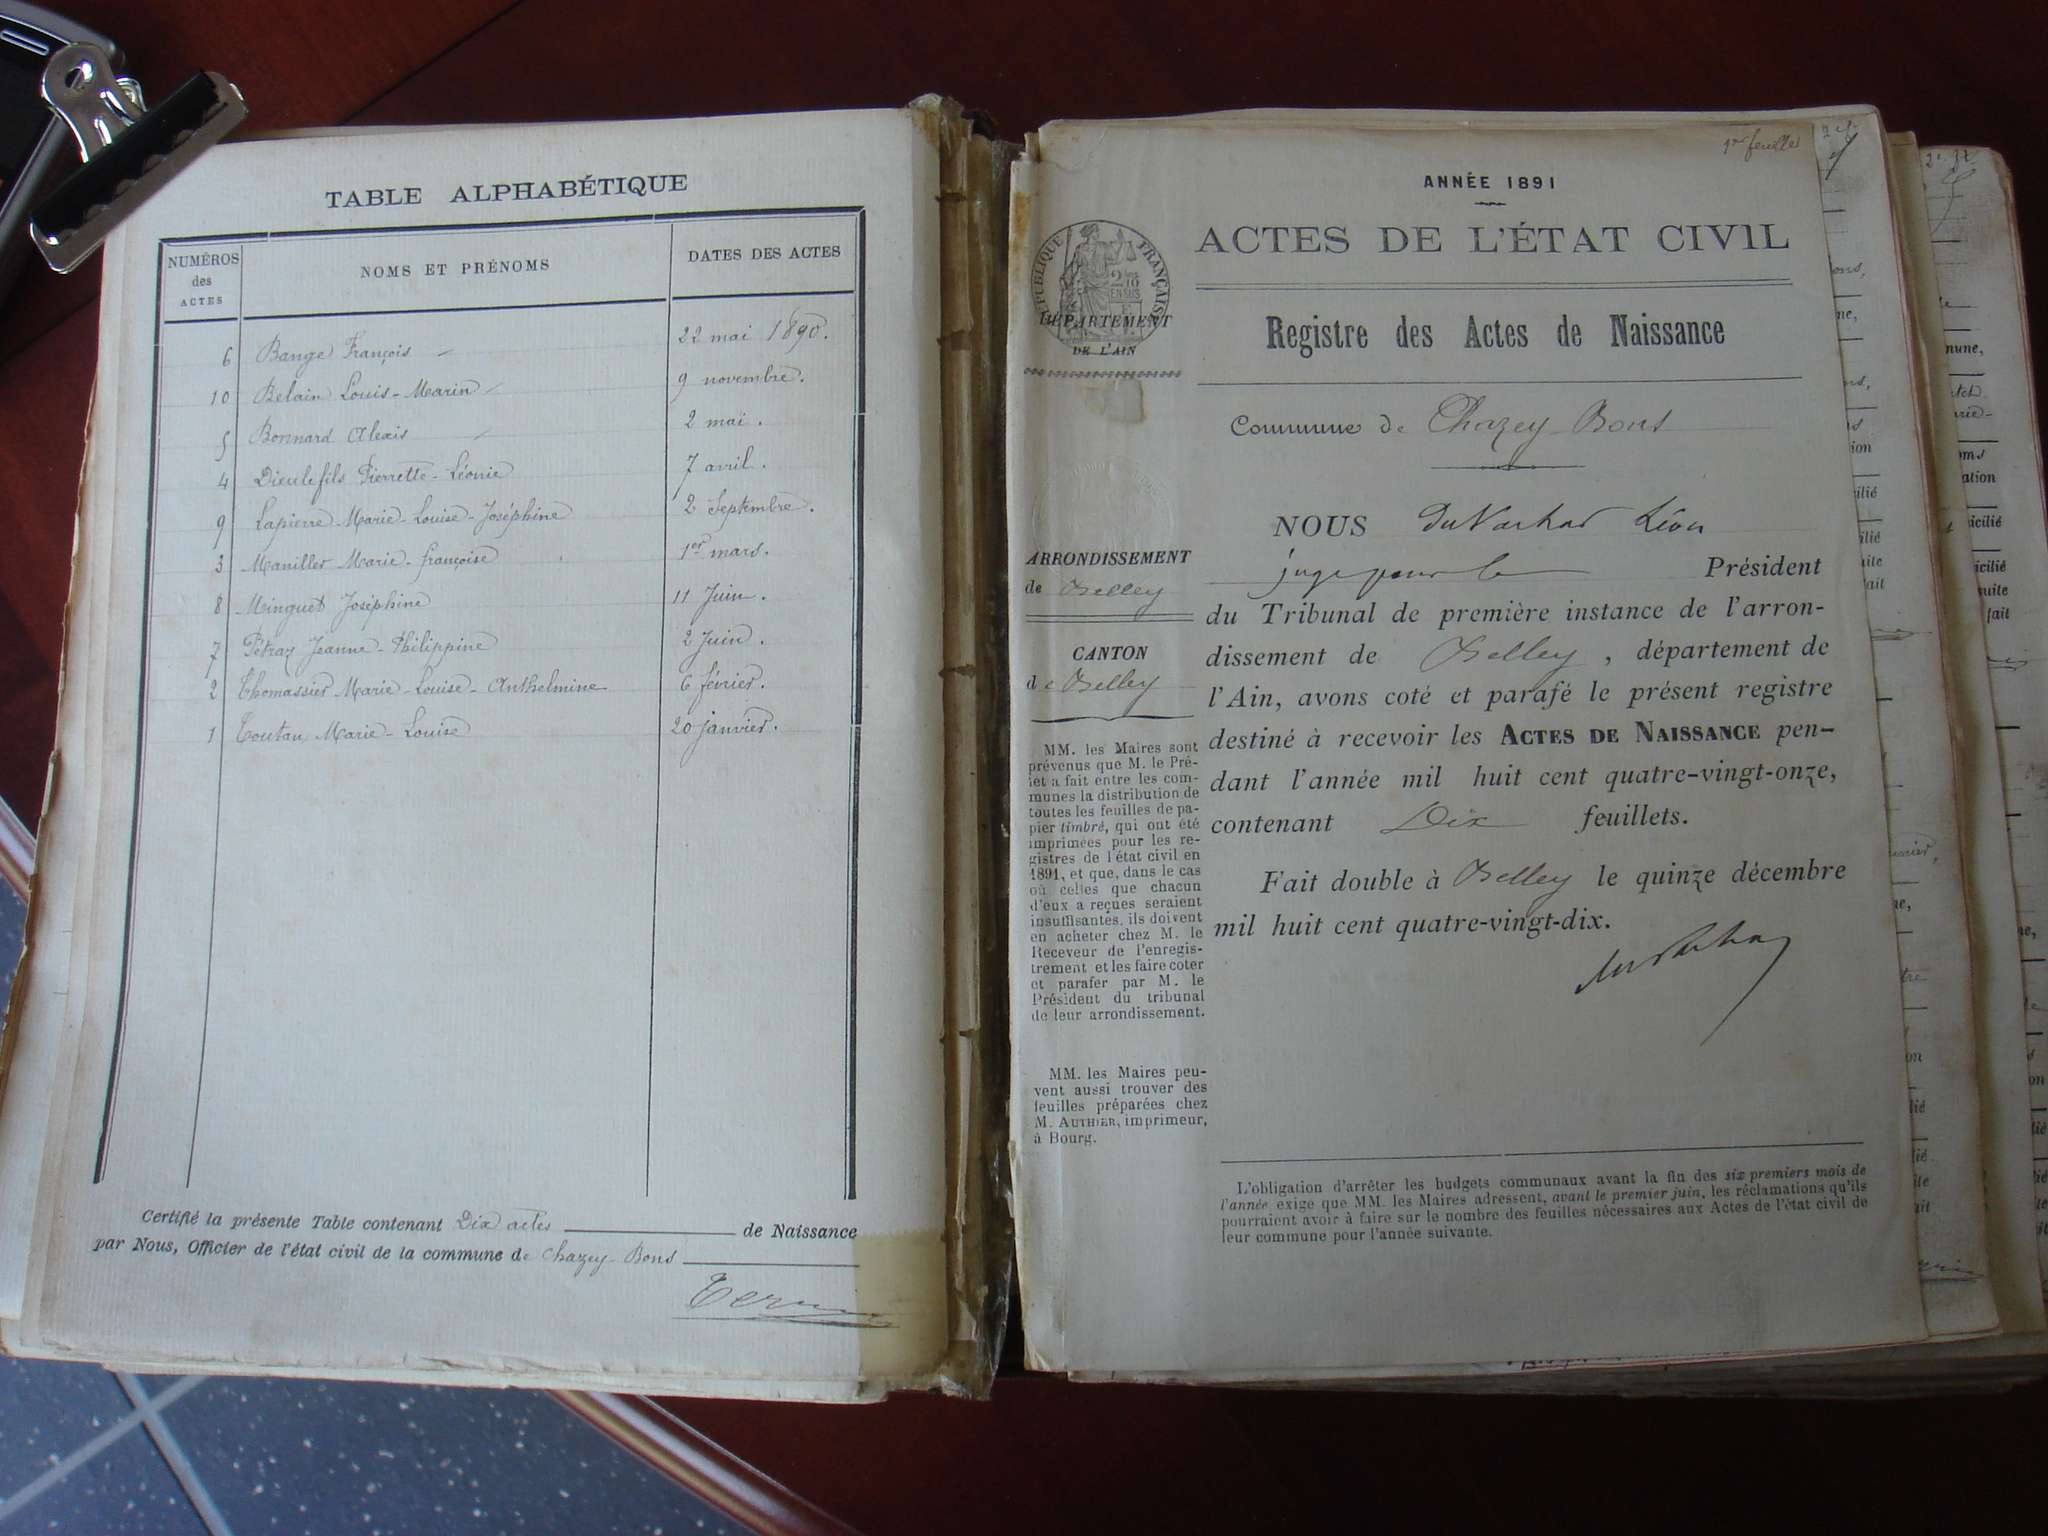 TABLE ALPHABÉTIQUE
NUMÉROS des ACTES NOMS ET PRÉNOMS DATES DES ACTES
6 Bange François 22 mai 1890.
10 Belain Louis-Marin 9 novembre.
5 Bonnard Alexis 2 mai.
4 Dieulefils Pierrette-Léonie 7 avril.
9 Lapierre Marie-Louise-Joséphine 2 Septembre.
3 Manillet Marie-françoise 1er mars.
8 Minguet Joséphine 11 Juin.
7 Pétraz Jeanne-Philippine 2 Juin.
2 Thomassier Marie-Louise-Anthelmine 6 février.
1 Toutan Marie-Louise 20 janvier.
Certifié la présente Table contenant Dix actes de Naissance
par Nous, Officier de l'état civil de la commune de Chazey-Bons
1re feuille
ANNÉE 1891
ACTES DE L'ÉTAT CIVIL
RÉPUBLIQUE FRANÇAISE
DÉPARTEMENT
DE L'AIN
Registre des Actes de Naissance
Commune de Chazey-Bons
ARRONDISSEMENT
de Belley
CANTON
de Belley
MM. les Maires sont
prévenus que M. le Pré-
fet a fait entre les com-
munes la distribution de
toutes les feuilles de pa-
pier timbré, qui ont été
imprimées pour les re-
gistres de l'état civil en
1891, et que, dans le cas
où celles que chacun
d'eux a reçues seraient
insuffisantes, ils doivent
en acheter chez M. le
Receveur de l'enregis-
trement et les faire coter
et parafer par M. le
Président du tribunal
de leur arrondissement.
MM. les Maires peu-
vent aussi trouver des
feuilles préparées chez
M. AUTHIER, imprimeur,
à Bourg.
NOUS Léon
juge pour le Président
du Tribunal de première instance de l'arron-
dissement de Belley, département de
l'Ain, avons coté et parafé le présent registre
destiné à recevoir les ACTES DE NAISSANCE pen-
dant l'année mil huit cent quatre-vingt-onze,
contenant Dix feuillets.
Fait double à Belley le quinze décembre
mil huit cent quatre-vingt-dix.
L'obligation d'arrêter les budgets communaux avant la fin des six premiers mois de
l'année exige que MM. les Maires adressent, avant le premier juin, les réclamations qu'ils
pourraient avoir à faire sur le nombre des feuilles nécessaires aux Actes de l'état civil de
leur commune pour l'année suivante.